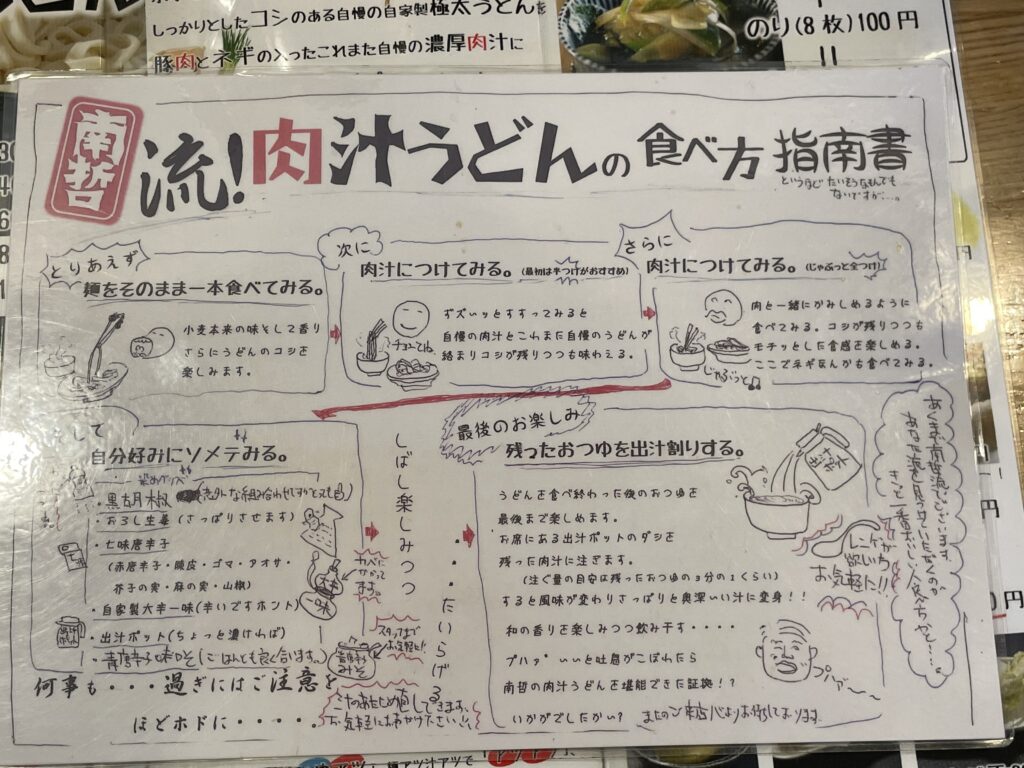 しっかりとしたコシのある自慢の自家製極太うどんを
豚肉とネギの入ったこれまた自慢の濃厚肉汁に
のり(8枚)100円
南哲
流!肉汁うどんの食べ方指南書
というほど たいそうなもんでも
ないですが…。
とりあえず
麺をそのまま一本食べてみる。
小麦本来の味そして香り
さらにうどんのコシを
楽しみます。
次に
肉汁につけてみる。(最初は半つけがおすすめ)
ズズいッとすすってみると
自慢の肉汁とこれまた自慢のうどんが
絡まりコシが残りつつも味わえる。
さらに
肉汁につけてみる。(じゃぶっと全つけ)
肉と一緒にかみしめるように
食べてみる。コシが残りつつも
モチッとした食感を楽しめる。
ここでネギなんかも食べてみる。
じゃぶっと♫
そして
自分好みにソメテみる。
・黒胡椒
・おろし生姜(さっぱりさせます)
・七味唐辛子
(赤唐辛子・陳皮・ゴマ・アオサ・
芥子の実・麻の実・山椒)
・自家製大辛一味(辛いですホント)
・出汁ポット(ちょっと濃ければ)
・青唐辛子味噌(ごはんとも良く合います。)
大辛
一味
カベに
かかって
ます。
スタッフまで
お気軽に!
何事も・・・過ぎにはご注意を
ほどホドに・・・・・
しばし楽しみつつ・・・たいらげる
最後のお楽しみ
残ったおつゆを出汁割りする。
うどんを食べ終わった後のおつゆを
最後まで楽しめます。
お席にある出汁ポットのダシを
残った肉汁に注ぎます。
(注ぐ量の目安は残ったおつゆの3分の1くらい)
すると風味が変わりさっぱりと奥深い汁に変身!!
和の香りを楽しみつつ飲み干す・・・・
プハァ~いいと吐息がこぼれたら
南哲の肉汁うどんを堪能できた証拠!?
いかがでしたかい? またのご来店心よりお待ちしております
レンゲが
欲しい方
お気軽に!!
プハァ〜〜
あくまで南哲流でございます